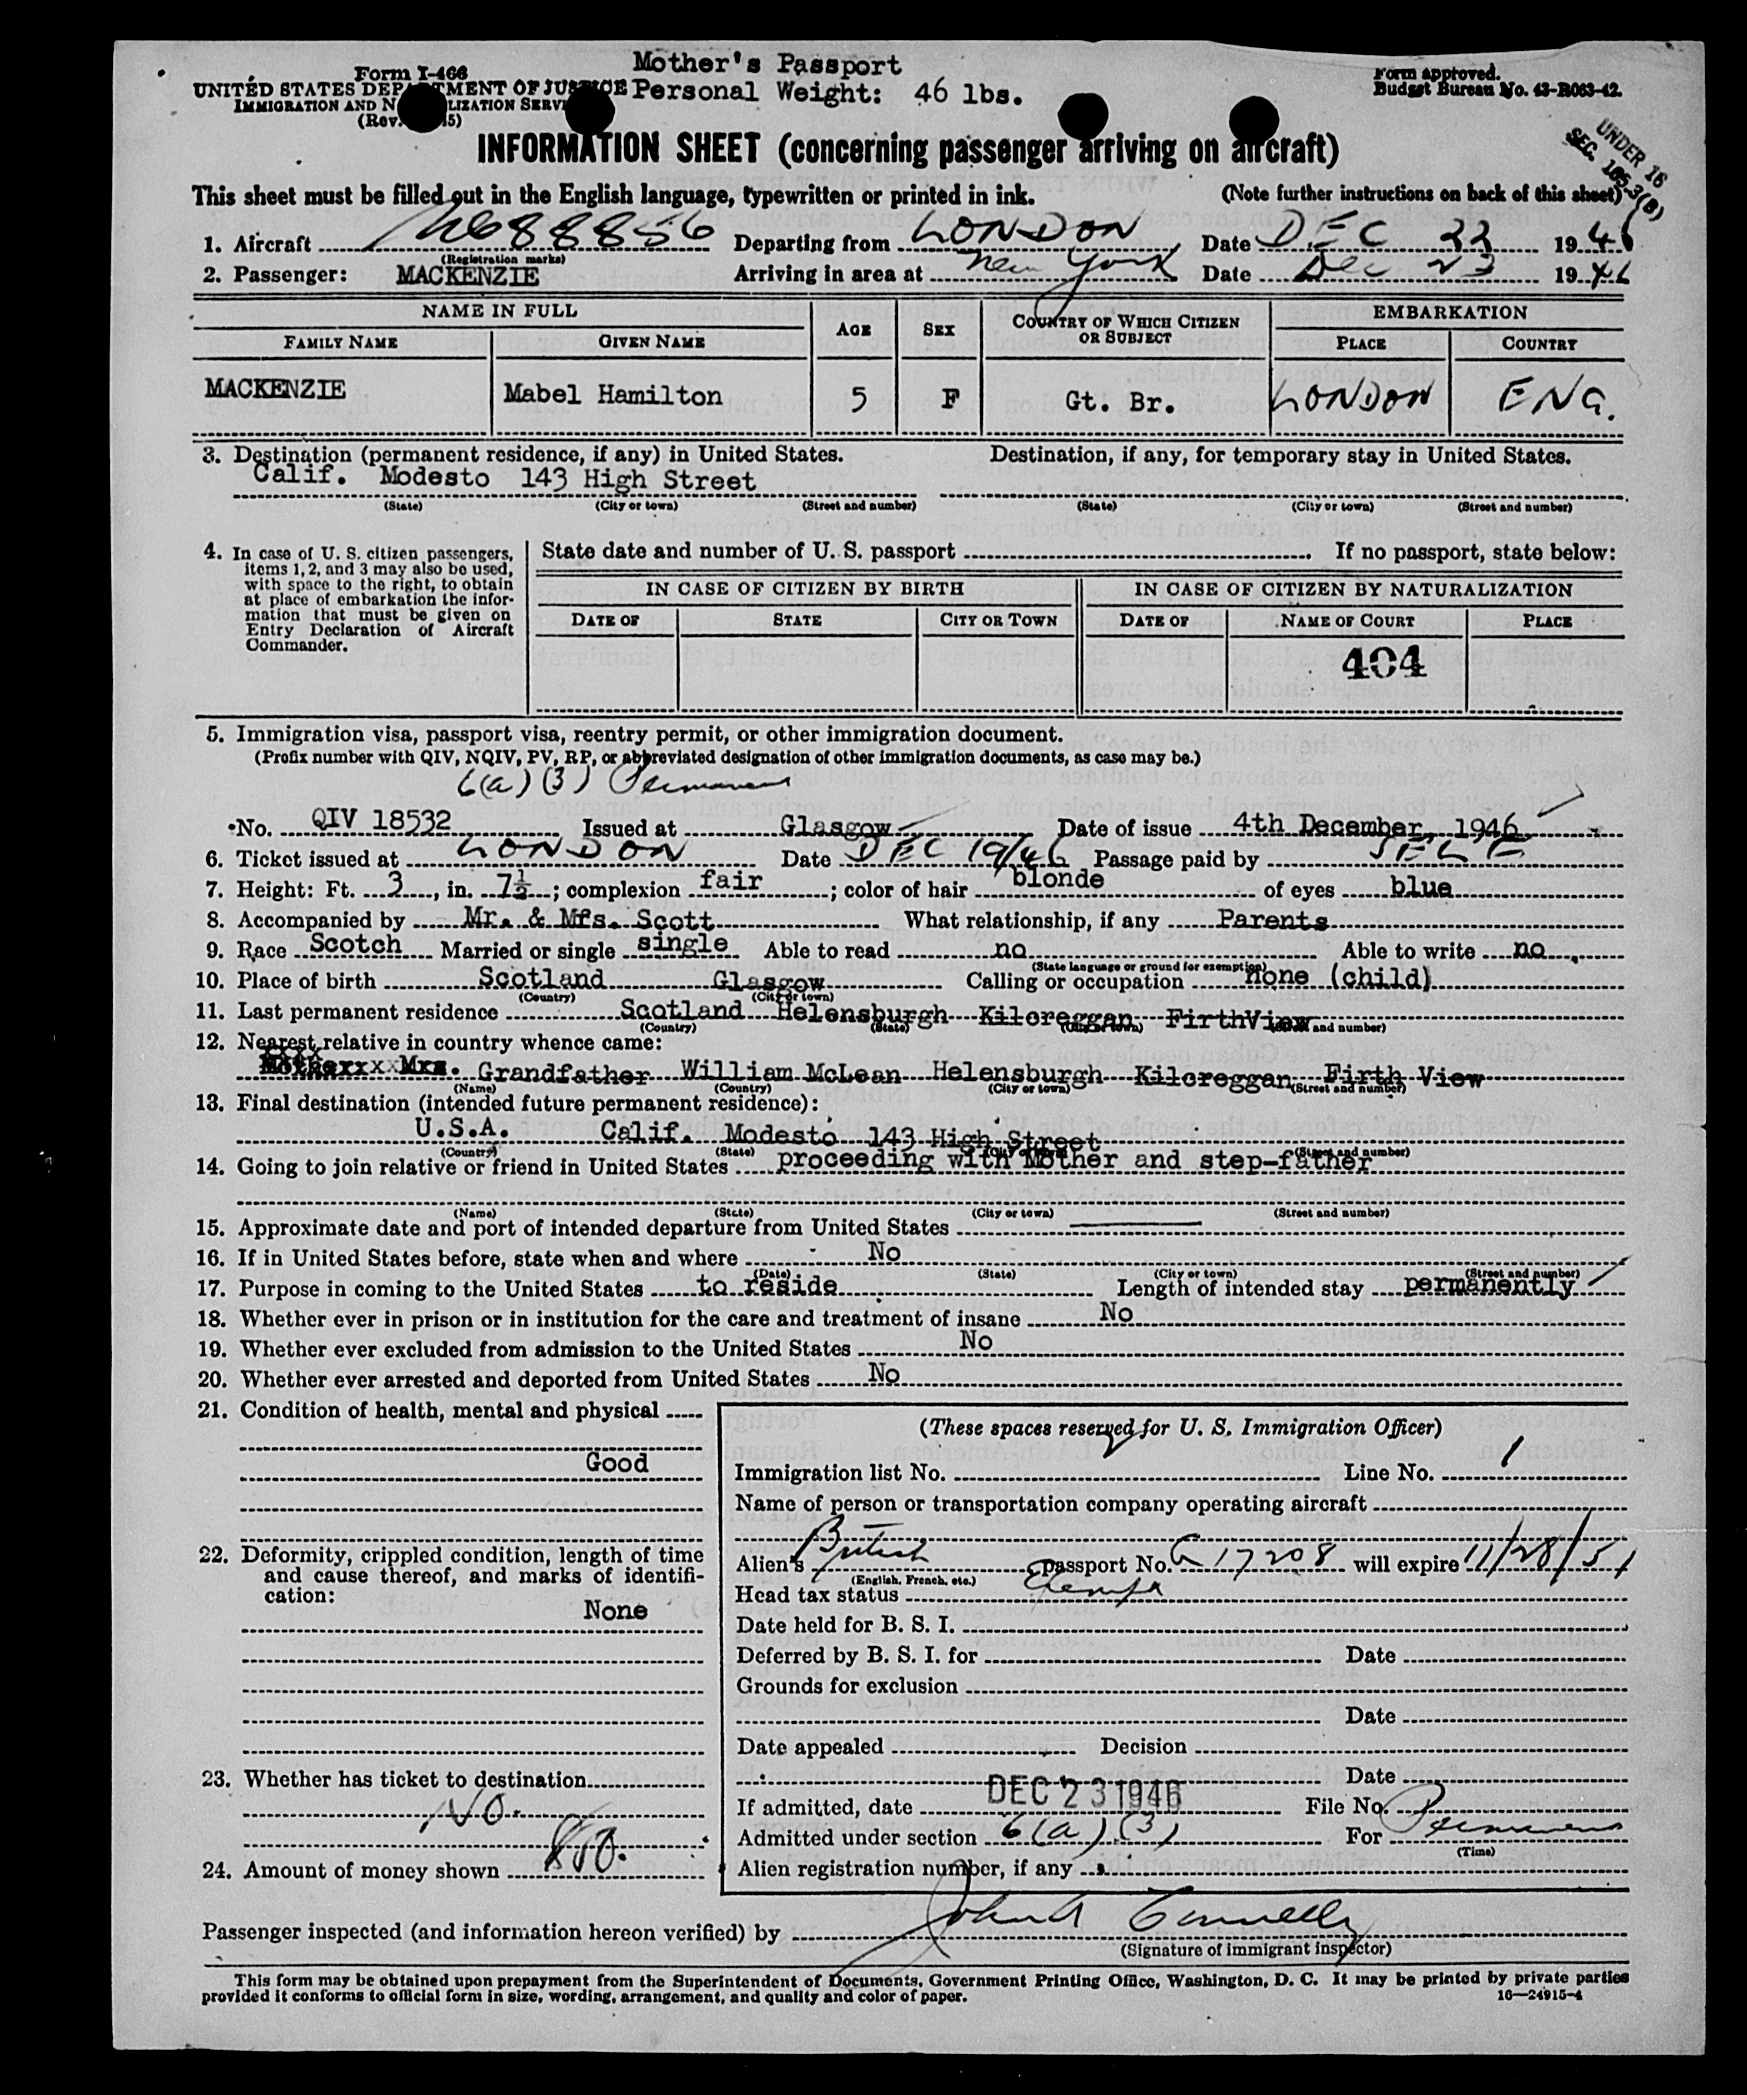 Mother's Passport
Form I-466
UNITED STATES DEPARTMENT OF JUSTICE Personal Weight: 46 lbs.
Form approved.
Budget Bureau No. 43-R063-42.
IMMIGRATION AND NATURALIZATION SERVICE
(Rev. 5)
UNDER 16
SEC. 165.3(B)
INFORMATION SHEET (concerning passenger arriving on aircraft)
This sheet must be filled out in the English language, typewritten or printed in ink. (Note further instructions on back of this sheet)
1. Aircraft N688856 Departing from LONDON, Date DEC 22 1946
(Registration marks)
2. Passenger: MACKENZIE Arriving in area at New York Date Dec 23 1946
NAME IN FULL AGE SEX COUNTRY OF WHICH CITIZEN OR SUBJECT EMBARKATION
FAMILY NAME GIVEN NAME PLACE COUNTRY
MACKENZIE Mabel Hamilton 5 F Gt. Br. LONDON ENG.
3. Destination (permanent residence, if any) in United States. Destination, if any, for temporary stay in United States.
Calif. Modesto 143 High Street
(State) (City or town) (Street and number) (State) (City or town) (Street and number)
4. In case of U. S. citizen passengers, items 1, 2, and 3 may also be used, with space to the right, to obtain at place of embarkation the information that must be given on Entry Declaration of Aircraft Commander.
State date and number of U. S. passport . If no passport, state below:
IN CASE OF CITIZEN BY BIRTH IN CASE OF CITIZEN BY NATURALIZATION
DATE OF STATE CITY OR TOWN DATE OF NAME OF COURT PLACE
404
5. Immigration visa, passport visa, reentry permit, or other immigration document.
(Prefix number with QIV, NQIV, PV, RP, or abbreviated designation of other immigration documents, as case may be.)
6(a)(3) Permanent
No. QIV 18532 Issued at Glasgow Date of issue 4th December, 1946
6. Ticket issued at LONDON Date DEC 19/46 Passage paid by SELF
7. Height: Ft. 3, in. 7½; complexion fair; color of hair blonde of eyes blue
8. Accompanied by Mr. & Mrs. Scott What relationship, if any Parents
9. Race Scotch Married or single single Able to read no Able to write no
(State language or ground for exemption)
10. Place of birth Scotland Glasgow Calling or occupation none (child)
(Country) (City or town)
11. Last permanent residence Scotland Helensburgh Kilcreggan FirthView
(Country) (State) (City or town) (Street and number)
12. Nearest relative in country whence came:
Grandfather William McLean Helensburgh Kilcreggan Firth View
(Name) (Country) (City or town) (Street and number)
13. Final destination (intended future permanent residence):
U.S.A. Calif. Modesto 143 High Street
(Country) (State) (City or town) (Street and number)
14. Going to join relative or friend in United States proceeding with Mother and step-father
(Name) (State) (City or town) (Street and number)
15. Approximate date and port of intended departure from United States
16. If in United States before, state when and where No
(Date) (State) (City or town) (Street and number)
17. Purpose in coming to the United States to reside Length of intended stay permanently
18. Whether ever in prison or in institution for the care and treatment of insane No
19. Whether ever excluded from admission to the United States No
20. Whether ever arrested and deported from United States No
21. Condition of health, mental and physical
Good
22. Deformity, crippled condition, length of time and cause thereof, and marks of identification:
None
23. Whether has ticket to destination
NO.
24. Amount of money shown
(These spaces reserved for U. S. Immigration Officer)
Immigration list No. Line No. 1
Name of person or transportation company operating aircraft
Alien's British passport No. C 17208 will expire 11/28/51
(English, French, etc.)
Head tax status Exempt
Date held for B. S. I.
Deferred by B. S. I. for Date
Grounds for exclusion
Date
Date appealed Decision
Date
If admitted, date DEC 23 1946 File No.
Admitted under section 6(a)(3) For Permanent
(Time)
Alien registration number, if any
Passenger inspected (and information hereon verified) by John A Connelly
(Signature of immigrant inspector)
This form may be obtained upon prepayment from the Superintendent of Documents, Government Printing Office, Washington, D. C. It may be printed by private parties
provided it conforms to official form in size, wording, arrangement, and quality and color of paper. 16—24915-4